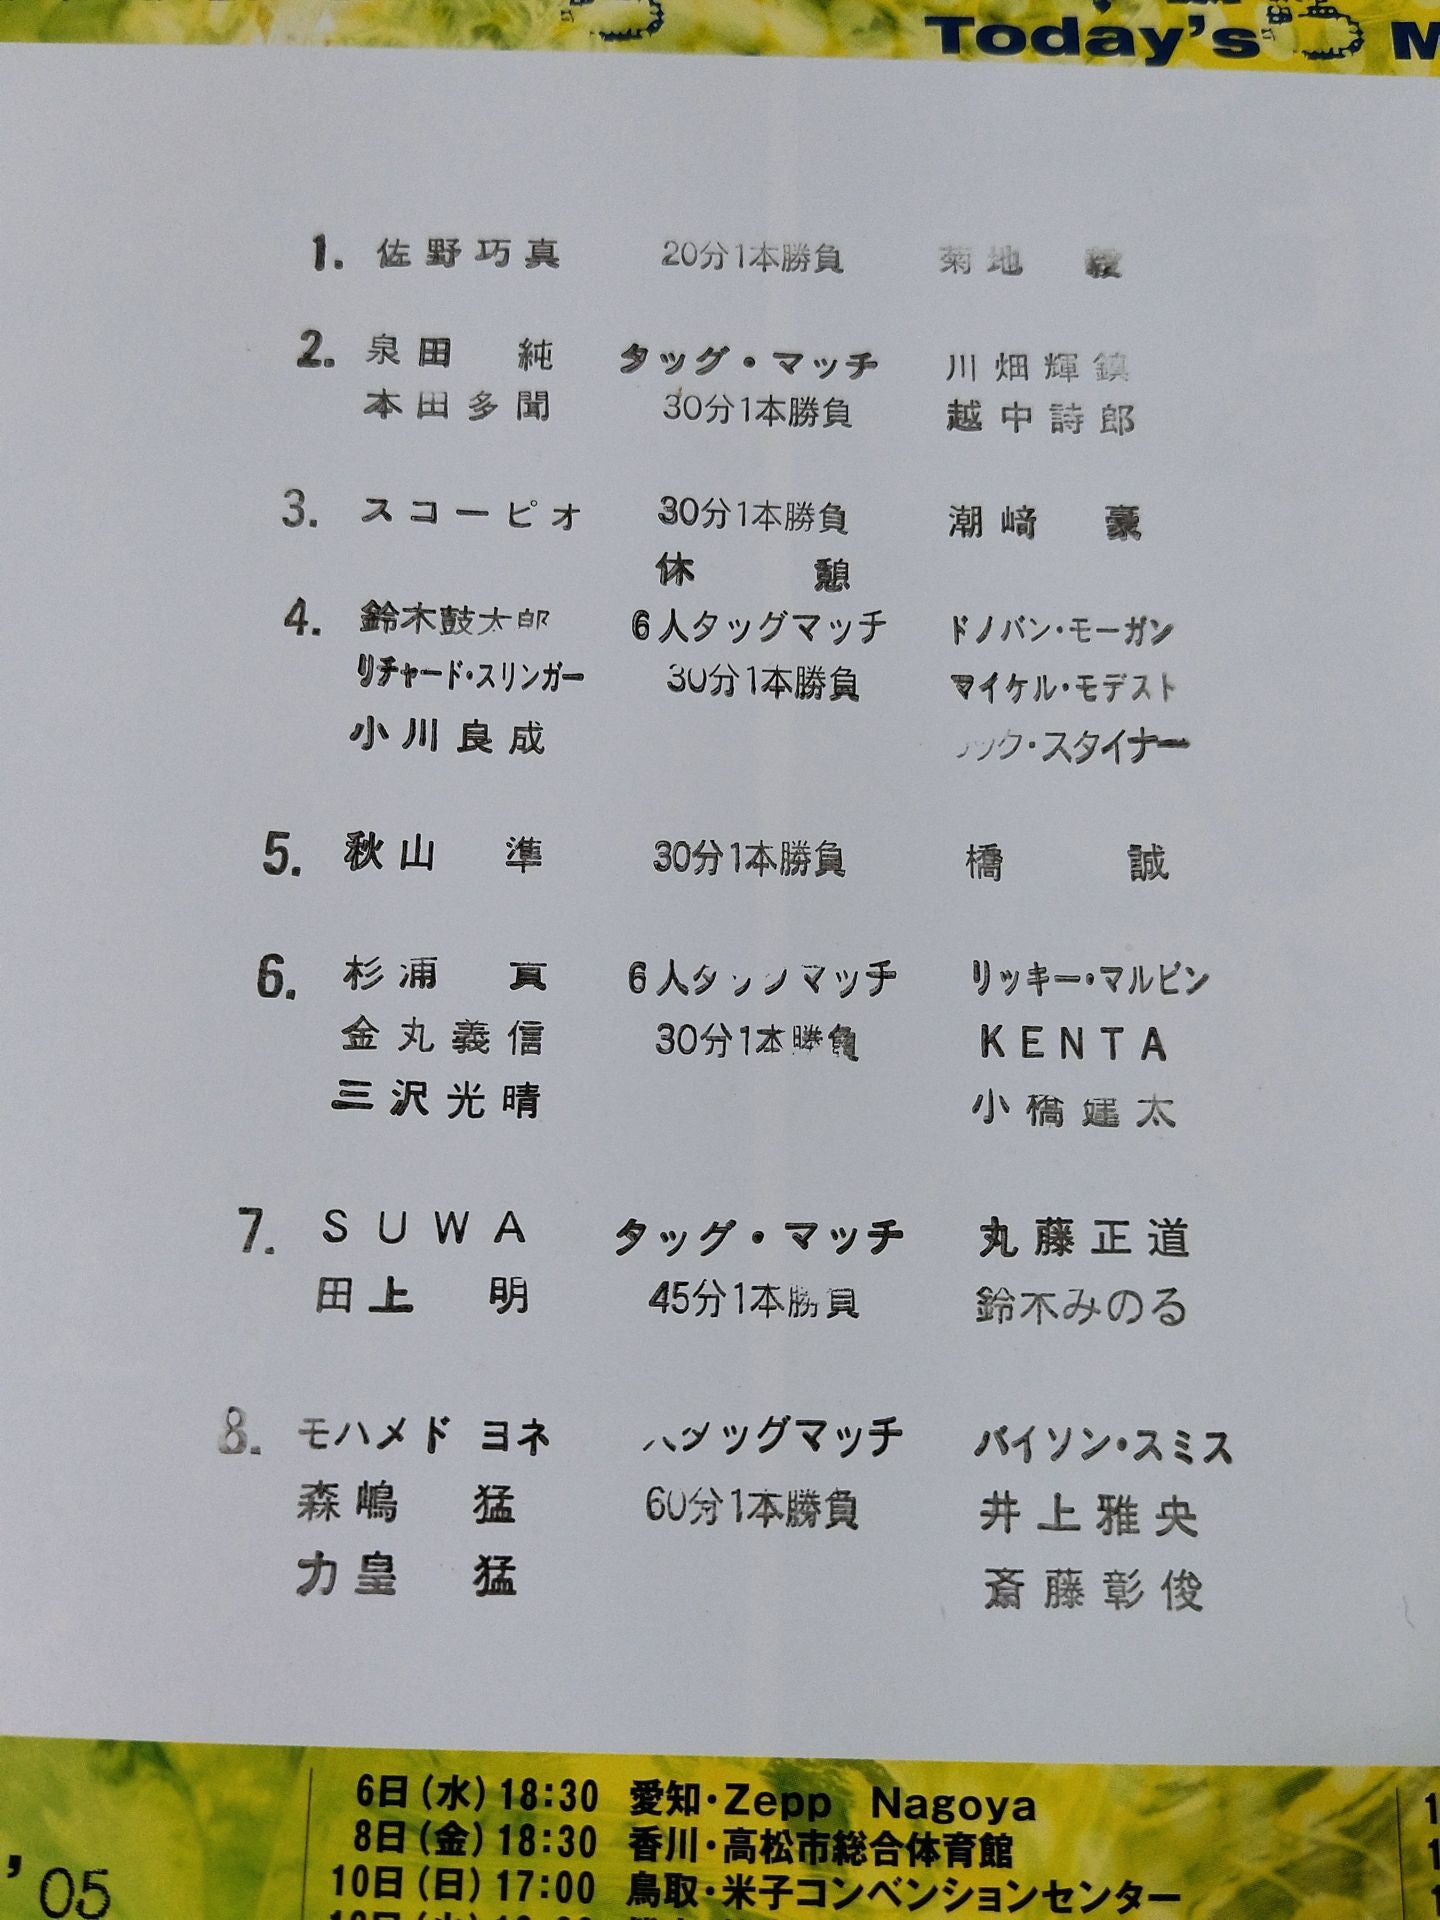 Today's
1. 佐野巧真 20分1本勝負 菊地 毅
2. 泉田 純 タッグ・マッチ 川畑輝鎮
本田多聞 30分1本勝負 越中詩郎
3. スコーピオ 30分1本勝負 潮﨑 豪
休 憩
4. 鈴木鼓太郎 6人タッグマッチ ドノバン・モーガン
リチャード・スリンガー 30分1本勝負 マイケル・モデスト
小川良成 リック・スタイナー
5. 秋山 準 30分1本勝負 橋 誠
6. 杉浦 貴 6人タッグマッチ リッキー・マルビン
金丸義信 30分1本勝負 KENTA
三沢光晴 小橋建太
7. SUWA タッグ・マッチ 丸藤正道
田上 明 45分1本勝負 鈴木みのる
8. モハメド ヨネ 人タッグマッチ バイソン・スミス
森嶋 猛 60分1本勝負 井上雅央
力皇 猛 斎藤彰俊
6日(水)18:30 愛知・Zepp Nagoya
8日(金)18:30 香川・高松市総合体育館
10日(日)17:00 鳥取・米子コンベンションセンター
'05